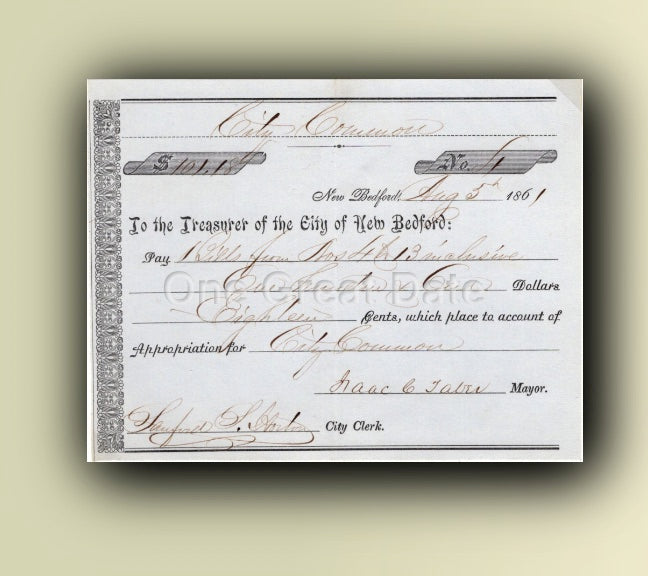 City Common
$ 101.18 No. 1
New Bedford, Aug 5th 1861
To the Treasurer of the City of New Bedford:
Pay Bills from Nos 4 to 13 inclusive
One Hundred & One Dollars
One Great Date
Eighteen Cents, which place to account of
Appropriation for City Common
Isaac C Taber Mayor.
Sanford S. Horton City Clerk.